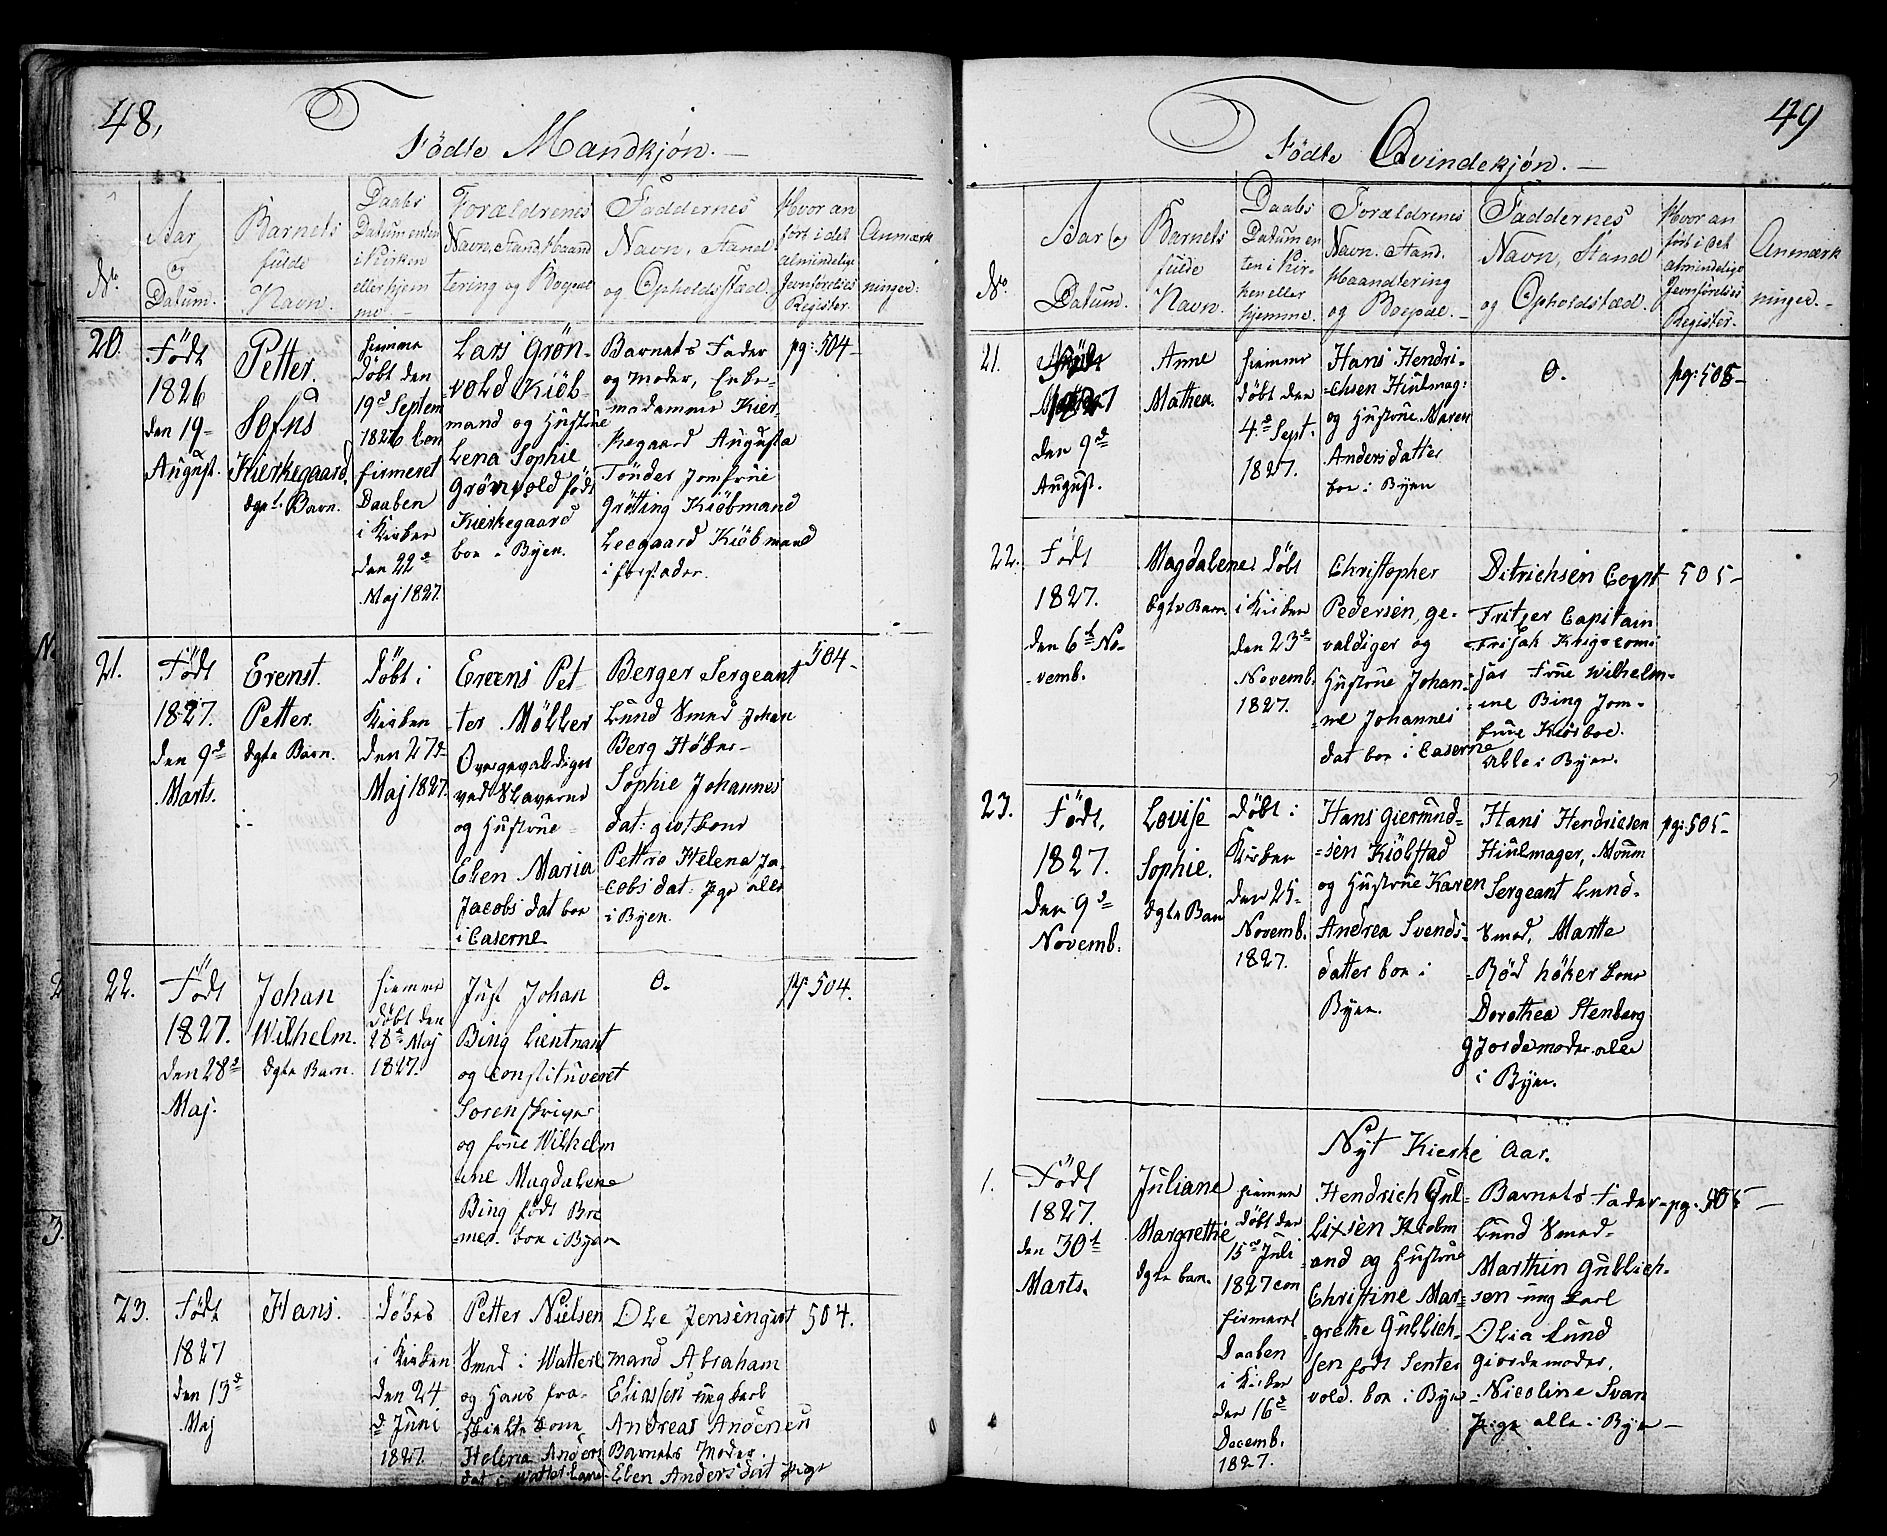 48,
Fødte Mandkjøn. —
No.
Aar
og
Datum.
Barnets
fulde
Navn.
Daabs
Datum enten
i Kirken
eller hjem
me —
Forældrenes
Navn, Stand, Haand
tering og Boepæl
Faddernes
Navn, Stand
og Opholdsstæd.
Hvor an
ført i det
almindelige
Jevnførelses
Register.
Anmærk
ninger.
20.
Født
1826
den 19-
August.
Petter
Sofus
Kierkegaard.
ægte Barn.
hiemme
døbt den
19d Septem
1826 Con
firmeret
Daaben
i Kirken
den 22d
Maj 1827.
Lars Grøn-
vold Kiøb
mand og Hustrue
Lena Sophie
Grønvold født
Kierkegaard
boe i Byen.
Barnets Fader
og Moder, Enke-
madamme Kier-
kegaard Augusta
Tønder Jomfrue
Grøtting Kiøbmand
Leegaard Kiøbmand
i
pg: 504-
21.
Født
1827.
den 9d
Marts.
Erenst
Petter.
ægte Barn.
døbt i
Kirken
den 27d
Maj 1827.
Erens Pet-
ter Møller
Overgevaldiger
ved Slaverne
og Hustrue
Elen Maria
Jacobs dat boe
i Caserne
Berger Sergeant
Lund Smed Johan
Berg Høker-
Sophie Johannes
dat: gift Kone
Pettro Helena Ja-
cobs dat: Pige alle
i Byen.
504-
22.
Født
1827.
den 28d
Maj.
Johan
Wilhelm.
ægte Barn.
hiemme
døbt den
28d Maj
1827.
Just Johan
Bing Lieutnant
og Constitueret
Sorenskriver
og frue Wilhelm
ine Magdalene
Bing født Bre
mer. boe i Byen
0.
pg 504.
23.
Født
1827
den 13d
Maj
Hans.
døbes
i Kirken
den 24
d: Juni
1827.
Petter Nielsen
Smed i
og Hans fra-
skildte Kone
Helena Anders
dat
Ole Jensen gift
mand Abraham
Eliassen ung Karl
Andreas
Barnets Moder.
Elen Anders dat Pige
504.
49
Fødte Qvindekjøn. —
No.
Aar og
Datum.
Barnets
fulde
Navn.
Daabs
Datum en
ten i Kir-
ken eller
hjemme.
Forældrenes
Navn. Stand.
Haandtering
og Boepæl. —
Faddernes
Navn, Stand
og Opholdstæd.
Hvor an
ført i det
almindelige
Jevnførelses
Register.
Anmærk
ninger. -
21.
Født
1827
den 9d
August.
Anne
Mathea.
hiemme
døbt den
4d Sept.
1827.
Hans Hendri-
chsen Hiulmag:
og Hustrue Maren
Andersdatter
boe i Byen
0.
pg: 505-
22.
Født
1827.
den 6t No-
vemb.
Magdalene
Egte Barn
døbt
i Kirken
den 23d
Novemb.
1827.
Christopher
Pedersen, ge-
valdiger og
Hustrue Johan-
ne Johannes
dat boe i Caserne
Ditrichsen
Fritzer Capitain
Frisak Krigscomi
sær Frue Wilhelm-
ine Bing Jom-
frue Kiørboe.
Alle i Byen.
505-
23.
Født.
1827.
den 9d
Novemb.
Lovise
Sophie.
Ægte Barn
døbt i
Kirken
den 25-
Novemb.
1827.
Hans Giermund-
sen Kiølstad
og Hustrue Karen
Andrea Svends-
datter boe i
Byen.
Hans Hendricsen
Hiulmager,
Sergeant Lund-
Smed. Martte
Rød høker Kone
Dorothea Stenberg
Gjordemoder alle
i Byen.
pg: 505-
Nyt Kierke Aar.
1.
Født
1827.
den 30t
Marts.
Juliane
Margrethe
ægte barn.
hiemme
døbt den
15d Juli
1827 con
firmeret
Daaben
i Kirken
den 16d
Decemb.
1827.
Hendrich Gul-
lixsen Kiøbm
and og Hustrue
Christine Mar-
grethe Gullich-
sen født Senter
vold. boe i Byen
Barnets Fader-
Lund Smed-
Marthin Gullich-
sen ung Karl
Olia Lund
Giordemoder.
Nicoline Svan
Pige alle i Byen —
pg: 505 —